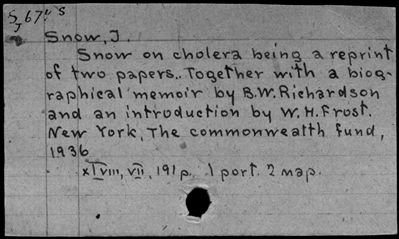 S67 s
J
Snow, J.
Snow on cholera being a reprint
of two papers.. Together with a biog-
raphical memoir by B.W. Richardson
and an introduction by W.H. Frost.
New York, The commonwealth fund,
1936
xlviii, vii, 191 p. 1 port. 2 map.